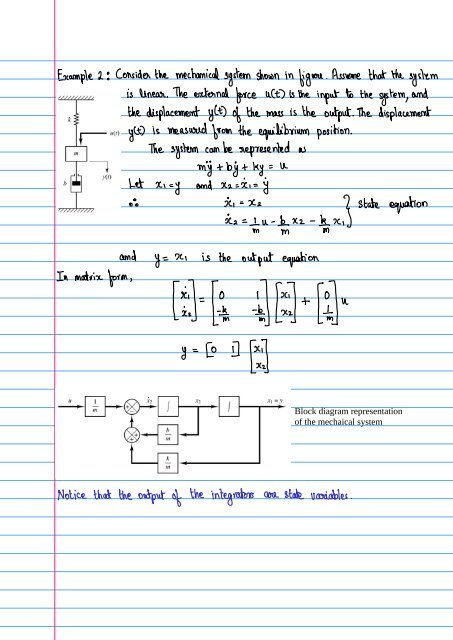 Example 2 : Consider the mechanical system shown in figure. Assume that the system
is linear. The external force u(t) is the input to the system, and
the displacement y(t) of the mass is the output. The displacement
y(t) is measured from the equilibrium position.
The system can be represented as
k
u(t)
m
y(t)
b
mÿ + bẏ + ky = u
Let x₁ = y and x₂ = ẋ₁ = ẏ
∴ ẋ₁ = x₂
ẋ₂ = 1/m u - b/m x₂ - k/m x₁ } State equation
and y = x₁ is the output equation
In matrix form,
[ẋ₁ ẋ₂] = [0 1 -k/m -b/m] [x₁ x₂] + [0 1/m] u
y = [0 1] [x₁ x₂]
u 1/m ẋ₂ ∫ x₂ ∫ x₁ = y
b/m
k/m
Block diagram representation
of the mechaical system
Notice that the output of the integrators are state variables.